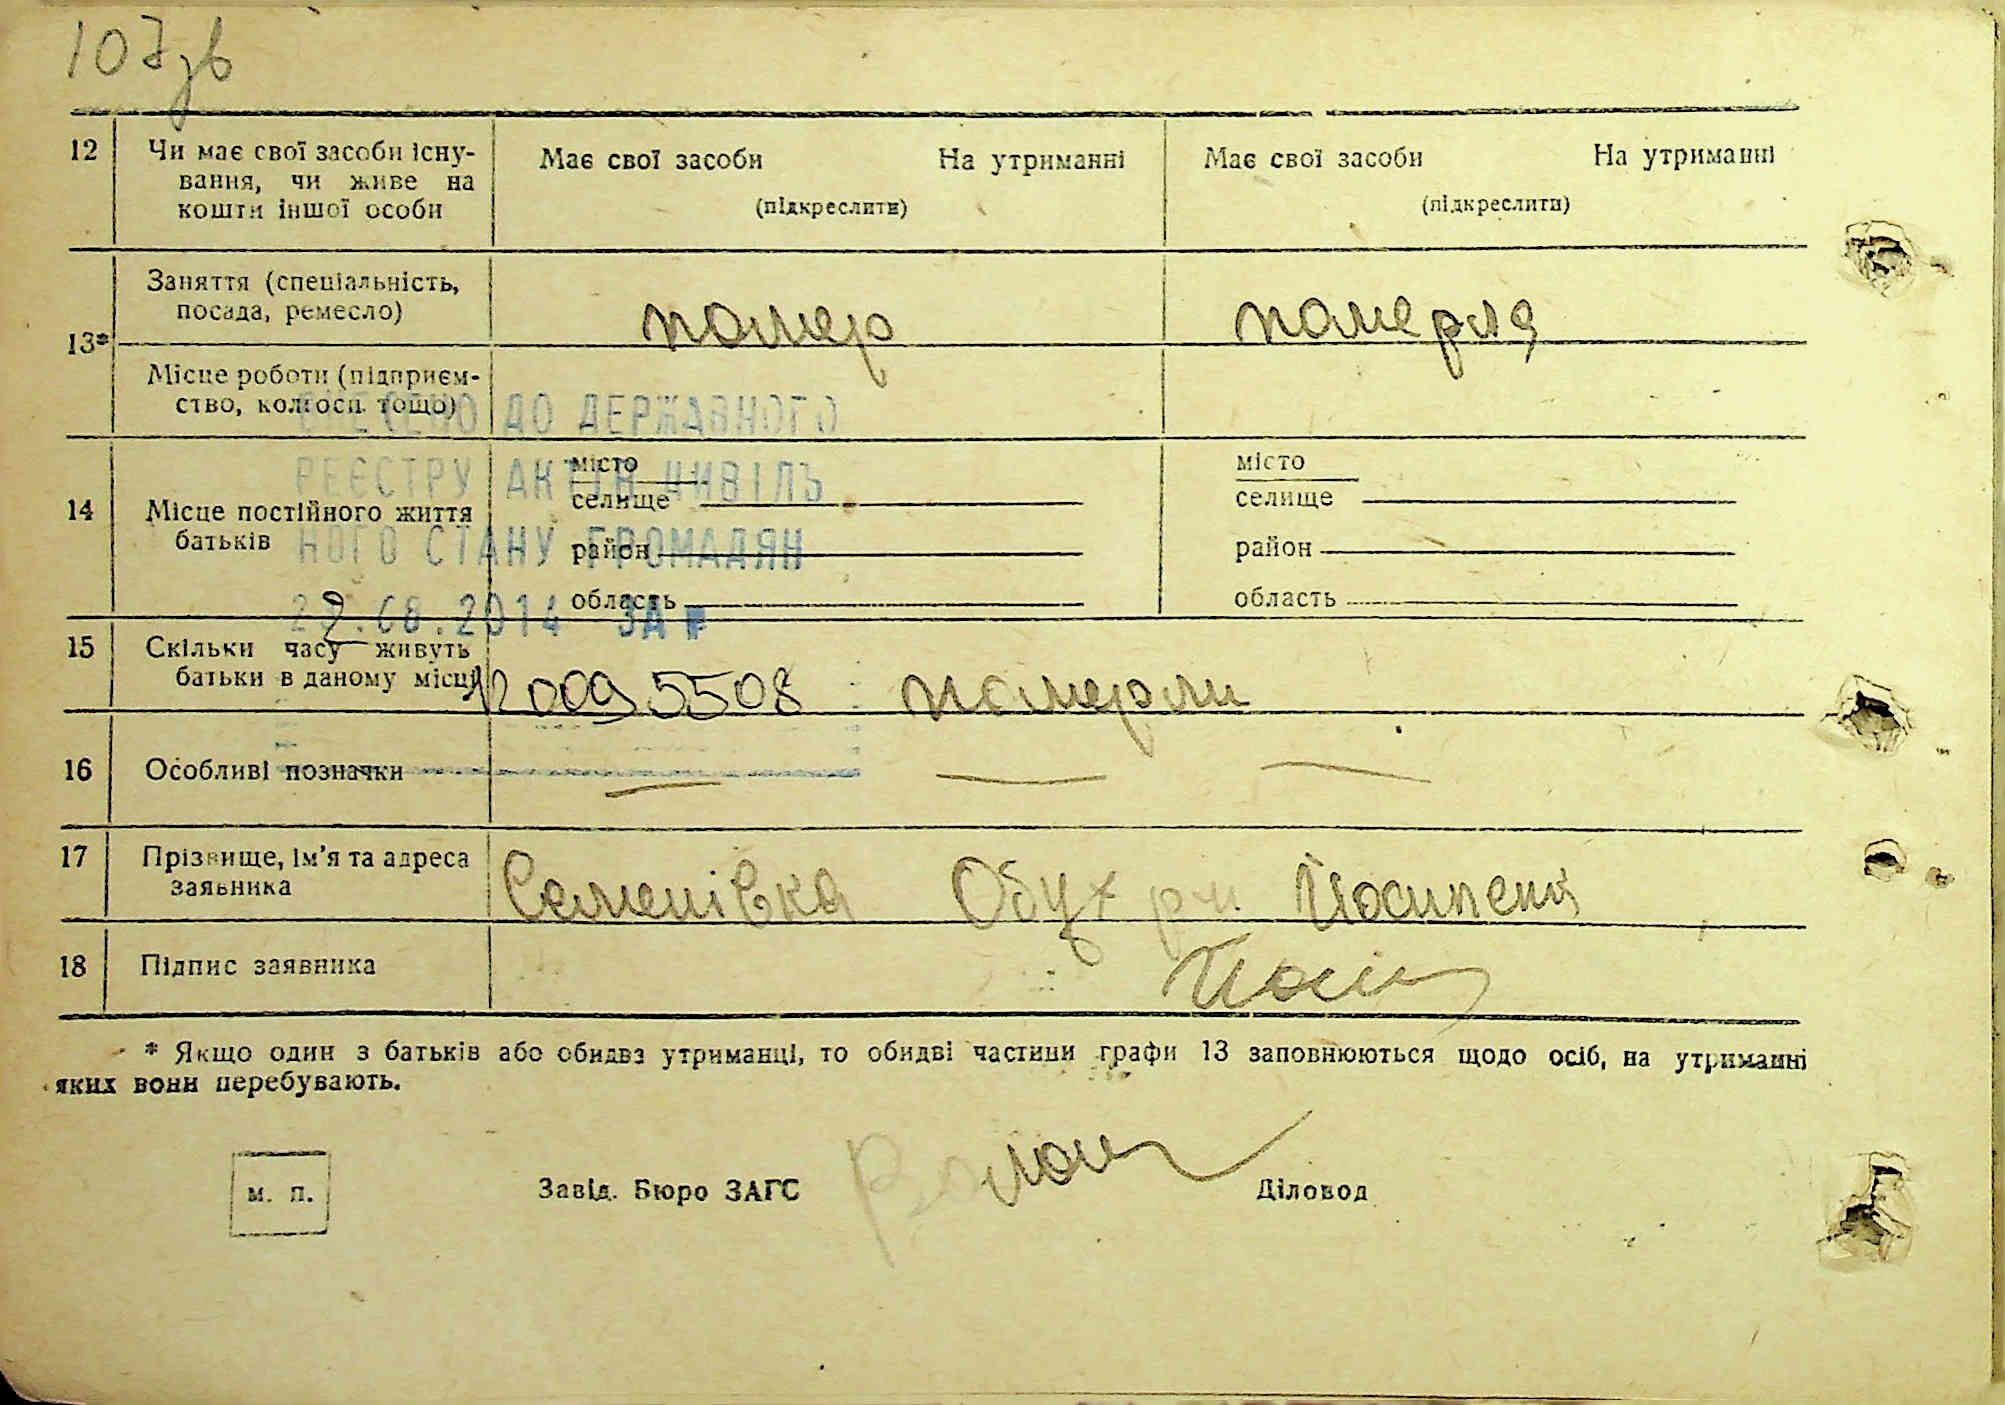 107зв
12 Чи має свої засоби існу-
вання, чи живе на
кошти іншої особи
Має свої засоби На утриманні
(підкреслити)
Має свої засоби На утриманні
(підкреслити)
13*
Заняття (спеціальність,
посада, ремесло)
помер
померла
Місце роботи (підприєм-
ство, колгосп тощо)
ВНЕСЕНО ДО ДЕРЖАВНОГО
РЕЄСТРУ АКТІВ ЦИВІЛЬ
НОГО СТАНУ ГРОМАДЯН
29.08.2014 ЗА №
14 Місце постійного життя
батьків
місто
селище
район
область
місто
селище
район
область
15 Скільки часу живуть
батьки в даному місці
0095508 померли
16 Особливі позначки — — —
17 Прізвище, ім'я та адреса
заявника
Семенівка Обух р-н Йосипенко
18 Підпис заявника
* Якщо один з батьків або обидва утриманці, то обидві частини графи 13 заповнюються щодо осіб, на утриманні
яких вони перебувають.
м. п.
Завід. Бюро ЗАГС
Діловод